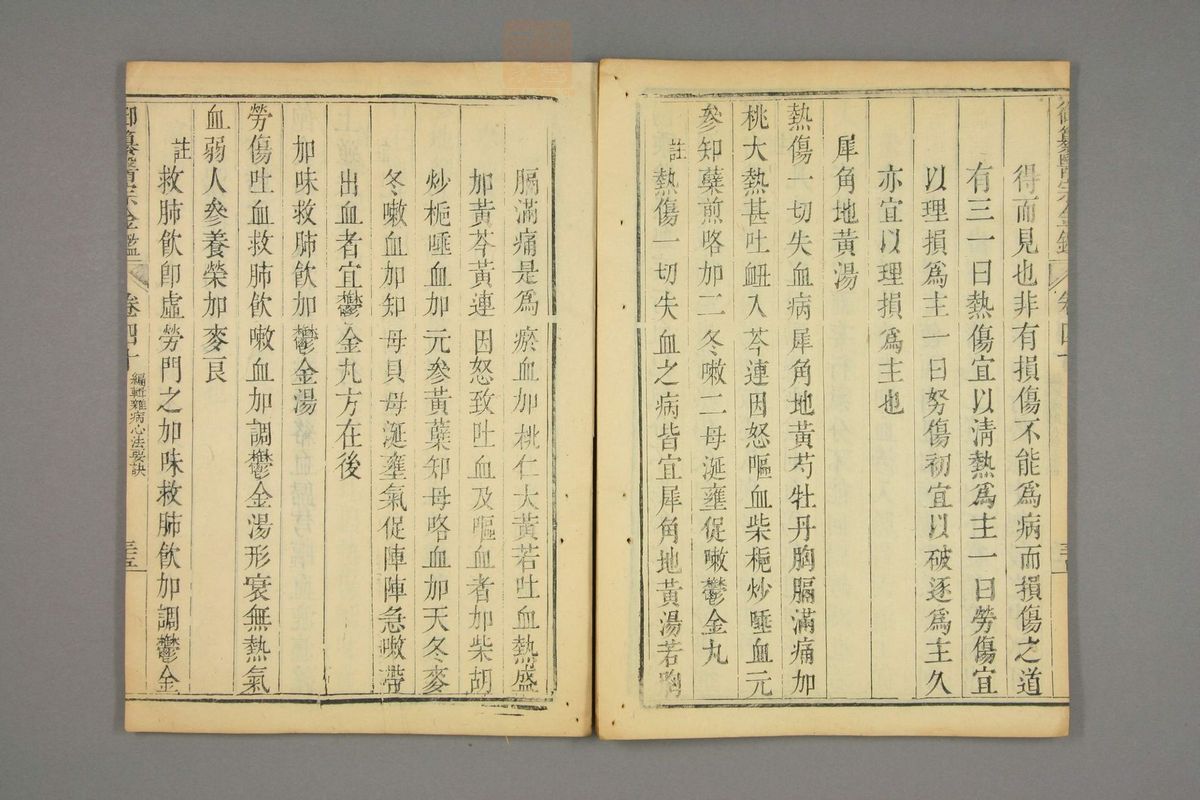 得而見也非有損傷不能爲病而損傷之道
有三一曰熱傷宜以清熱爲主一曰勞傷宜
以理損爲主一曰努傷初宜以破逐爲主久
亦宜以理損爲主也
犀角地黃湯
熱傷一切失血病犀角地黃芍牡丹胸膈滿痛加
桃大熱甚吐衄入芩連因怒嘔血柴梔炒唾血元
參知蘗煎咯加二冬嗽二母涎壅促嗽鬱金丸
註熱傷一切失血之病皆宜犀角地黃湯若胸
膈滿痛是爲瘀血加桃仁大黃若吐血熱盛
加黃芩黃連因怒致吐血及嘔血者加柴胡
炒梔唾血加元參黃蘗知母咯血加天冬麥
冬嗽血加知母貝母涎壅氣促陣陣急嗽帶
出血者宜鬱金丸方在後
加味救肺飲加鬱金湯
勞傷吐血救肺飲嗽血加調鬱金湯形衰無熱氣
血弱人參養榮加麥良
註救肺飲卽虛勞門之加味救肺飲加調鬱金
御纂醫宗金鑑 卷四十 編輯雜病心法要訣